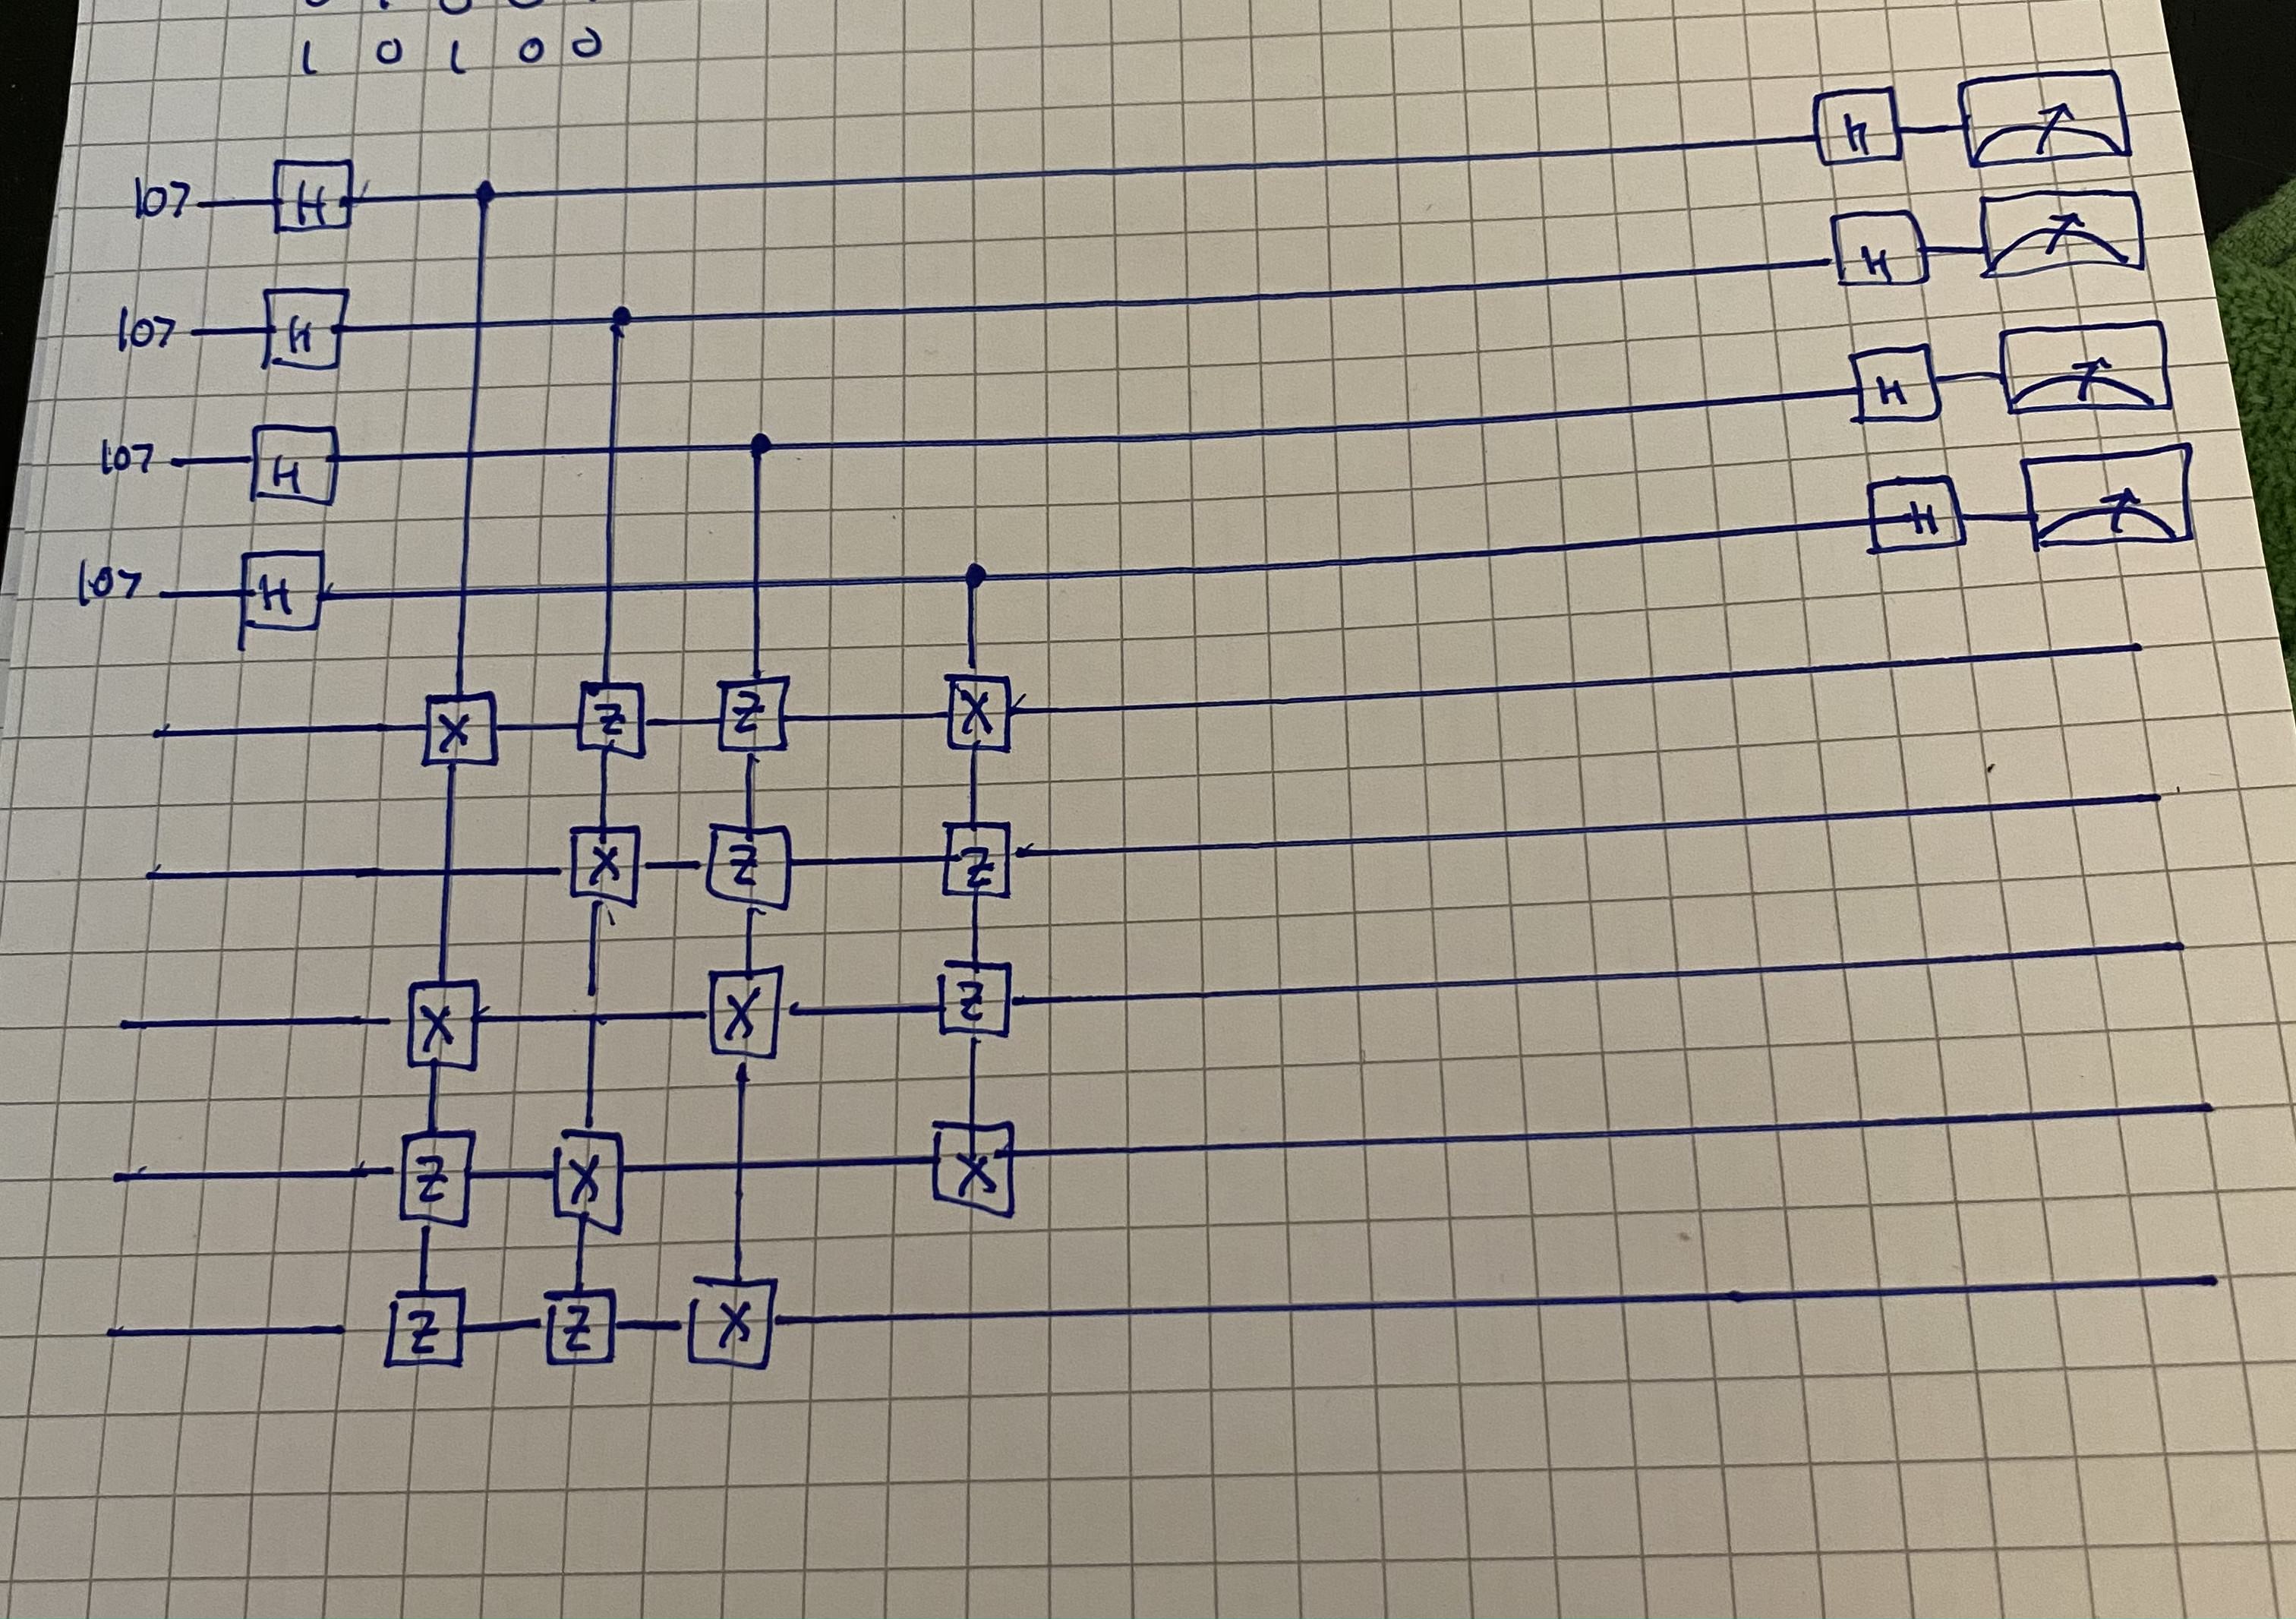 1 0 1 0 0
|0> H H
|0> H H
|0> H H
|0> H H
X Z Z X
X Z Z
X X Z
Z X X
Z Z X